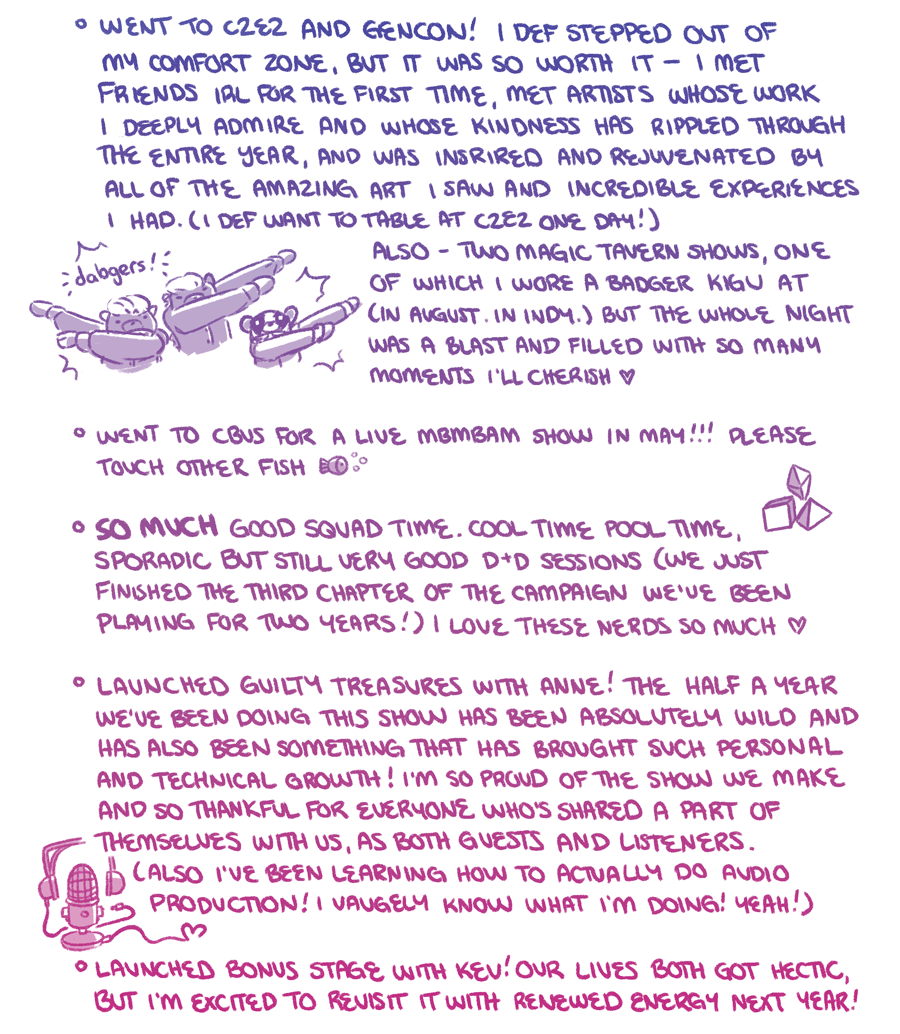 ° WENT TO C2E2 AND GENCON! I DEF STEPPED OUT OF
MY COMFORT ZONE, BUT IT WAS SO WORTH IT – I MET
FRIENDS IRL FOR THE FIRST TIME, MET ARTISTS WHOSE WORK
I DEEPLY ADMIRE AND WHOSE KINDNESS HAS RIPPLED THROUGH
THE ENTIRE YEAR, AND WAS INSRIRED AND REJUVENATED BY
ALL OF THE AMAZING ART I SAW AND INCREDIBLE EXPERIENCES
I HAD. (I DEF WANT TO TABLE AT C2E2 ONE DAY!)
dabgers!
ALSO – TWO MAGIC TAVERN SHOWS, ONE
OF WHICH I WORE A BADGER KIGU AT
(IN AUGUST. IN INDY.) BUT THE WHOLE NIGHT
WAS A BLAST AND FILLED WITH SO MANY
MOMENTS I'LL CHERISH ♡
° WENT TO CBUS FOR A LIVE MBMBAM SHOW IN MAY!!! PLEASE
TOUCH OTHER FISH
° SO MUCH GOOD SQUAD TIME. COOL TIME POOL TIME,
SPORADIC BUT STILL VERY GOOD D+D SESSIONS (WE JUST
FINISHED THE THIRD CHAPTER OF THE CAMPAIGN WE'VE BEEN
PLAYING FOR TWO YEARS!) I LOVE THESE NERDS SO MUCH ♡
° LAUNCHED GUILTY TREASURES WITH ANNE! THE HALF A YEAR
WE'VE BEEN DOING THIS SHOW HAS BEEN ABSOLUTELY WILD AND
HAS ALSO BEEN SOMETHING THAT HAS BROUGHT SUCH PERSONAL
AND TECHNICAL GROWTH! I'M SO PROUD OF THE SHOW WE MAKE
AND SO THANKFUL FOR EVERYONE WHO'S SHARED A PART OF
THEMSELVES WITH US, AS BOTH GUESTS AND LISTENERS.
(ALSO I'VE BEEN LEARNING HOW TO ACTUALLY DO AUDIO
PRODUCTION! I VAUGELY KNOW WHAT I'M DOING! YEAH!)
° LAUNCHED BONUS STAGE WITH KEV! OUR LIVES BOTH GOT HECTIC,
BUT I'M EXCITED TO REVISIT IT WITH RENEWED ENERGY NEXT YEAR!